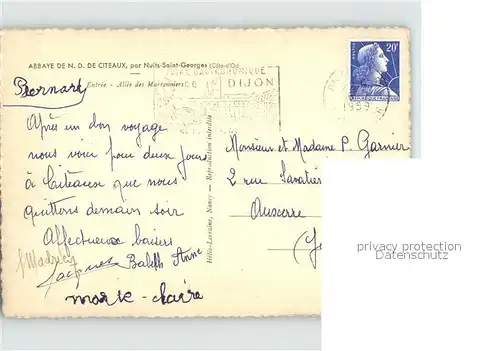 ABBAYE DE N. D. DE CITEAUX, par Nuits-Saint-Georges (Côte-d'Or)
Entrée - Allée des Marronniers
Bernard
FOIRE GASTRONOMIQUE
DIJON
20F
1959
Après un bon voyage
nous voici pour deux jours
à Citeaux que nous
quittons demain soir
Affectueux baisers
Jacques Babeth Anne
marie-claire
Hélio-Lorraine, Nancy - Reproduction interdite
Monsieur et Madame P. Garnier
2 rue Savatier
Auxerre
privacy protection